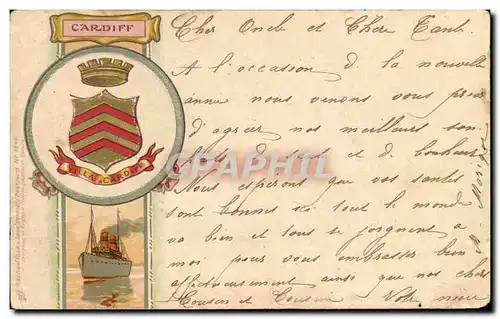 CARDIFF
VILLA CARDIFF
Cher Oncle et Chere Tante
A l'occasion de la nouvelle
année nous venons vous prier
d'agréer nos meilleurs sou-
haits de santé et de bonheur
Nous esperons que vos santés
sont bonnes ici tout le monde
va bien et tous se joignent a
moi pour vous embrasser bien
affectueusement ainsi que nos chers
Cousin et Cousine Votre nièce